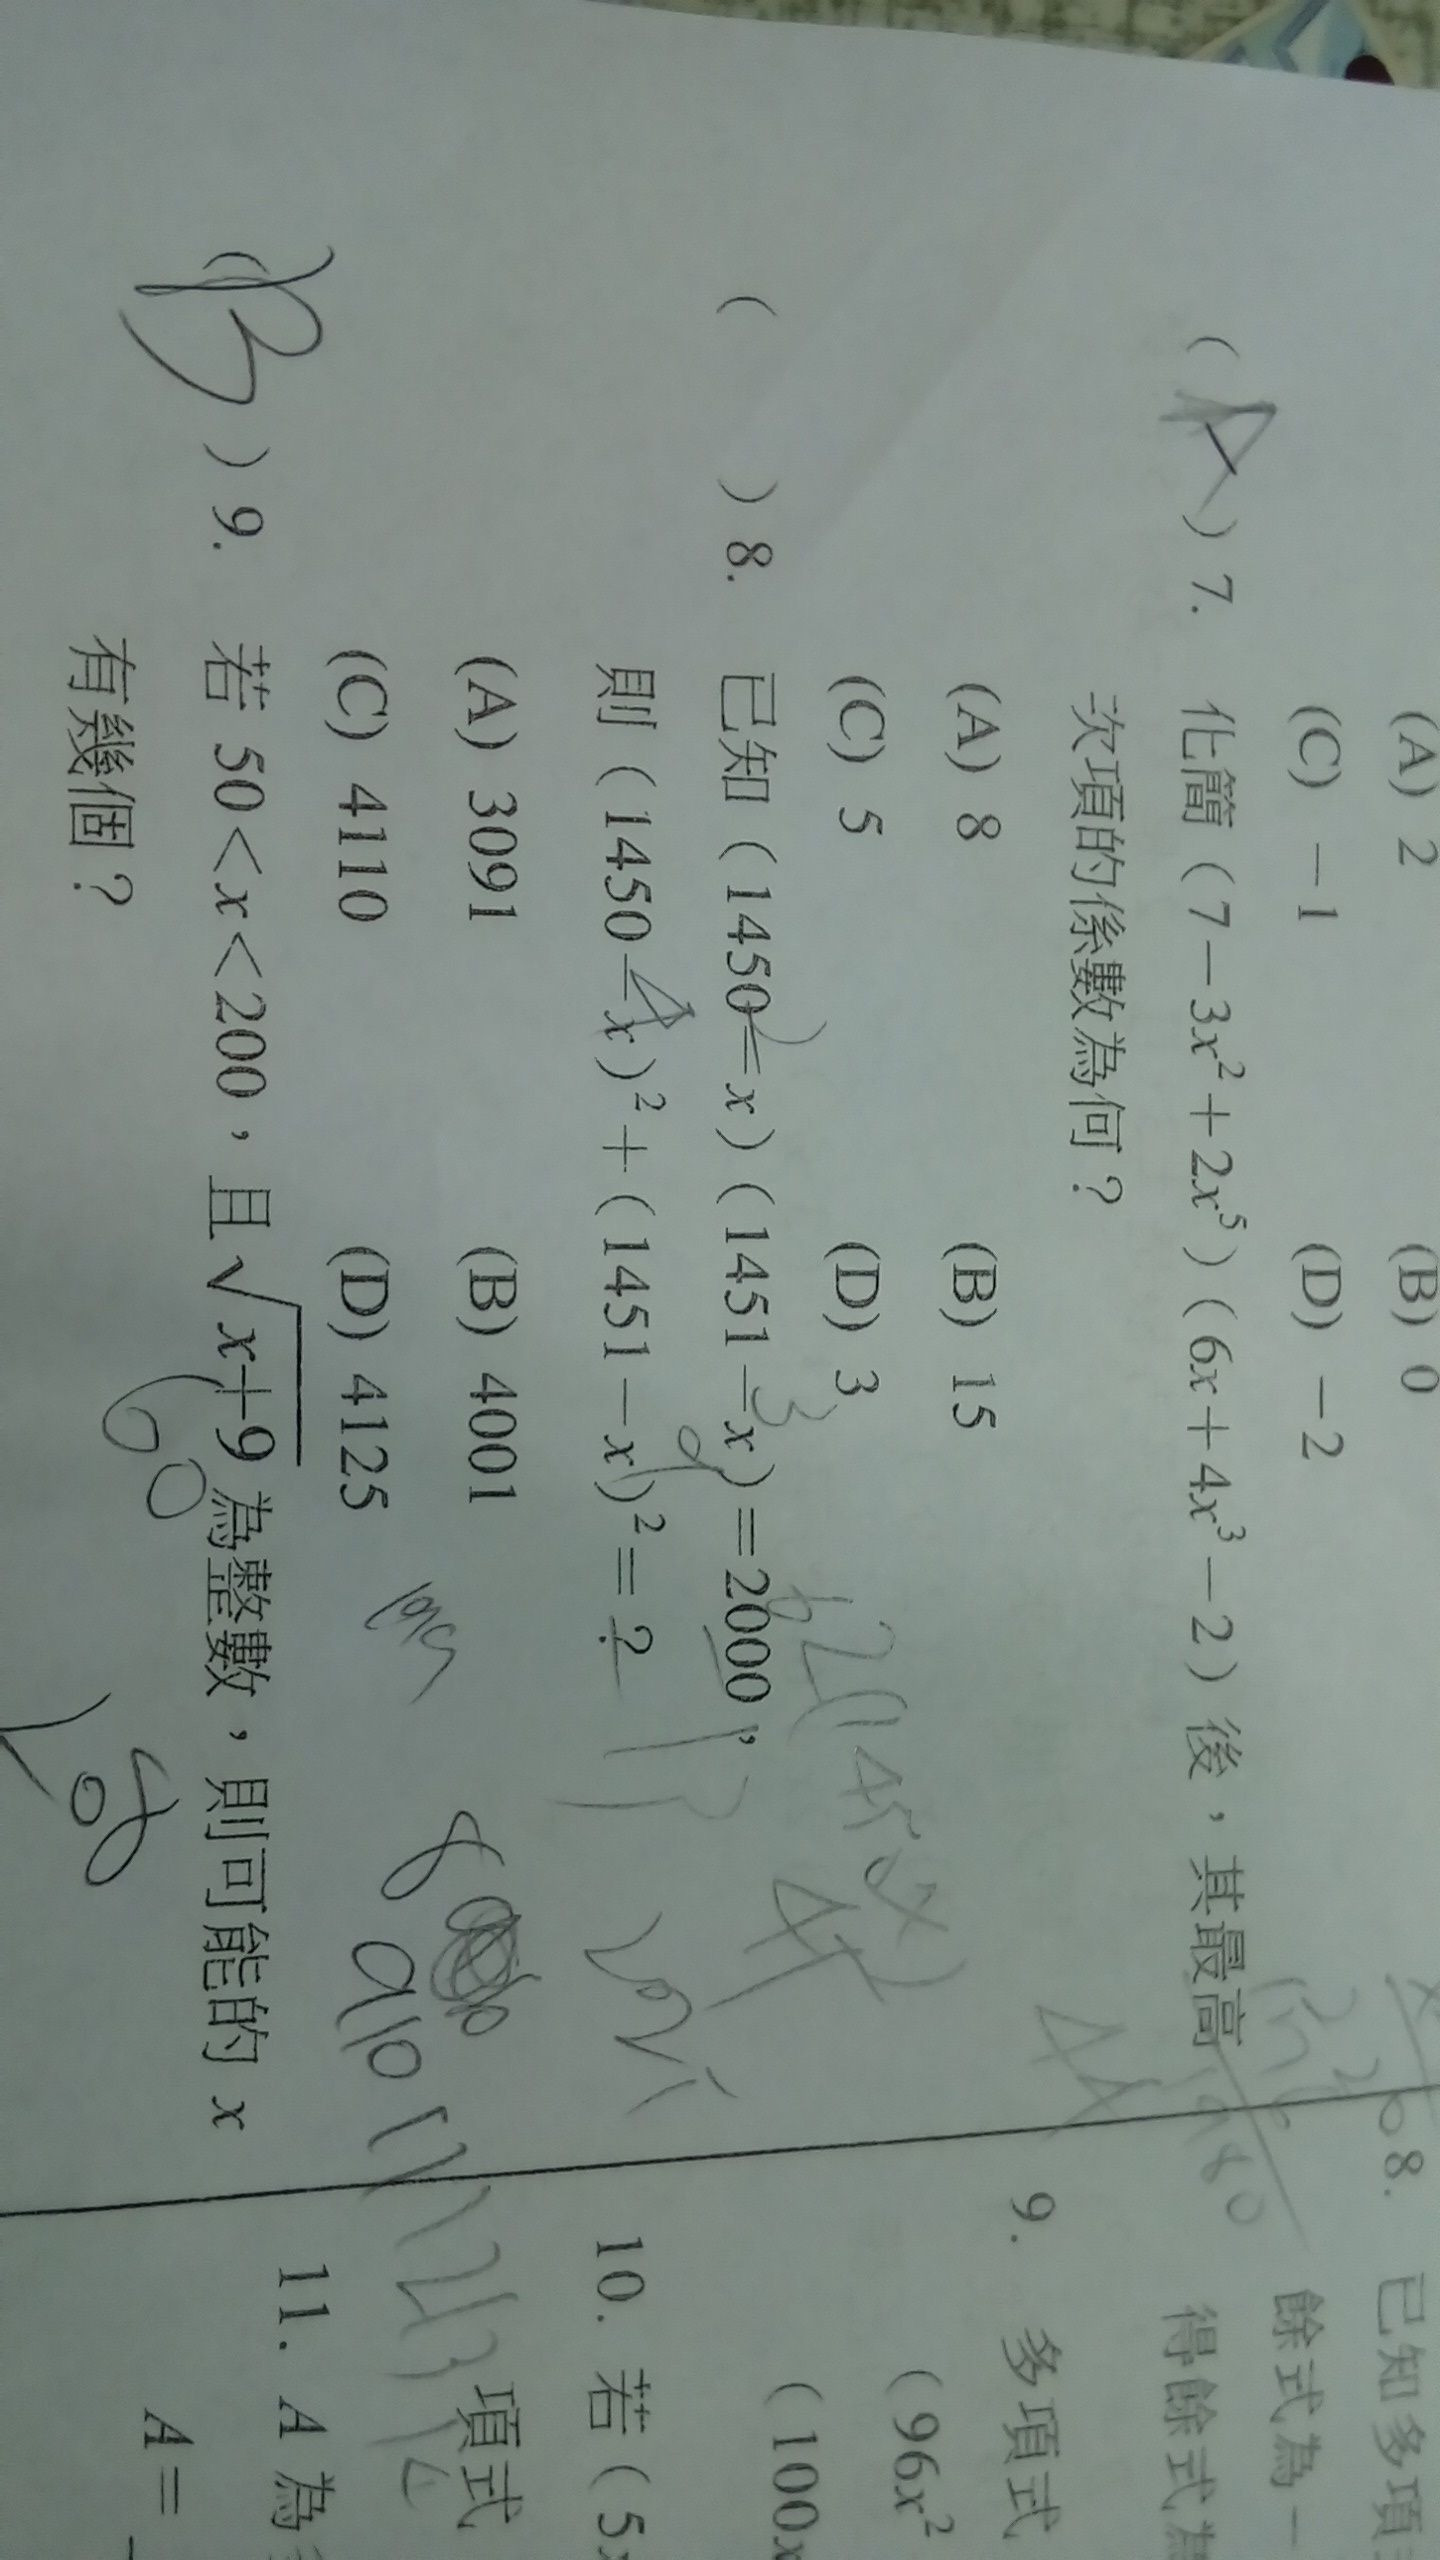 (A) 2 (B) 0
(C) －1 (D) －2
( A ) 7. 化簡（7－3x²＋2x⁵）（6x＋4x³－2）後，其最高
次項的係數為何？
(A) 8 (B) 15
(C) 5 (D) 3
( ) 8. 已知（1450－x）（1451－x）＝2000，
則（1450－x）²＋（1451－x）²＝？
(A) 3091 (B) 4001
(C) 4110 (D) 4125
( B ) 9. 若 50＜x＜200，且√x+9 為整數，則可能的 x
有幾個？
60
8. 已知多項
餘式為－
得餘式為
9. 多項式
（96x²
（100x
項式
10. 若（5x
11. A 為
A＝